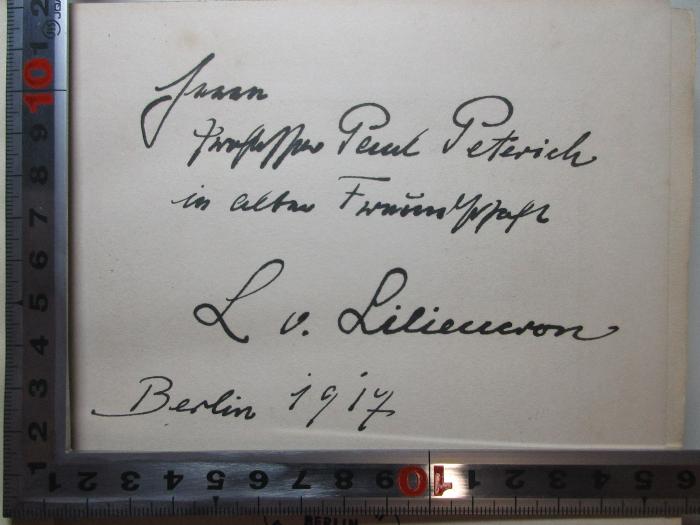 Herrn
Professor Paul Peterich
in alter Freundschaft
L v. Liliencron
Berlin 1917
BERLIN